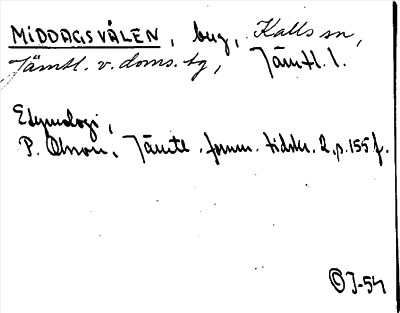 MIDDAGSVÅLEN, bug, Kalls sn,
Jämtl. v. doms. tg, Jämtl. l.
Etymologi,
P. Olsson, Jämtl. fornm. tidskr. 2, p. 155 f.
© J-54